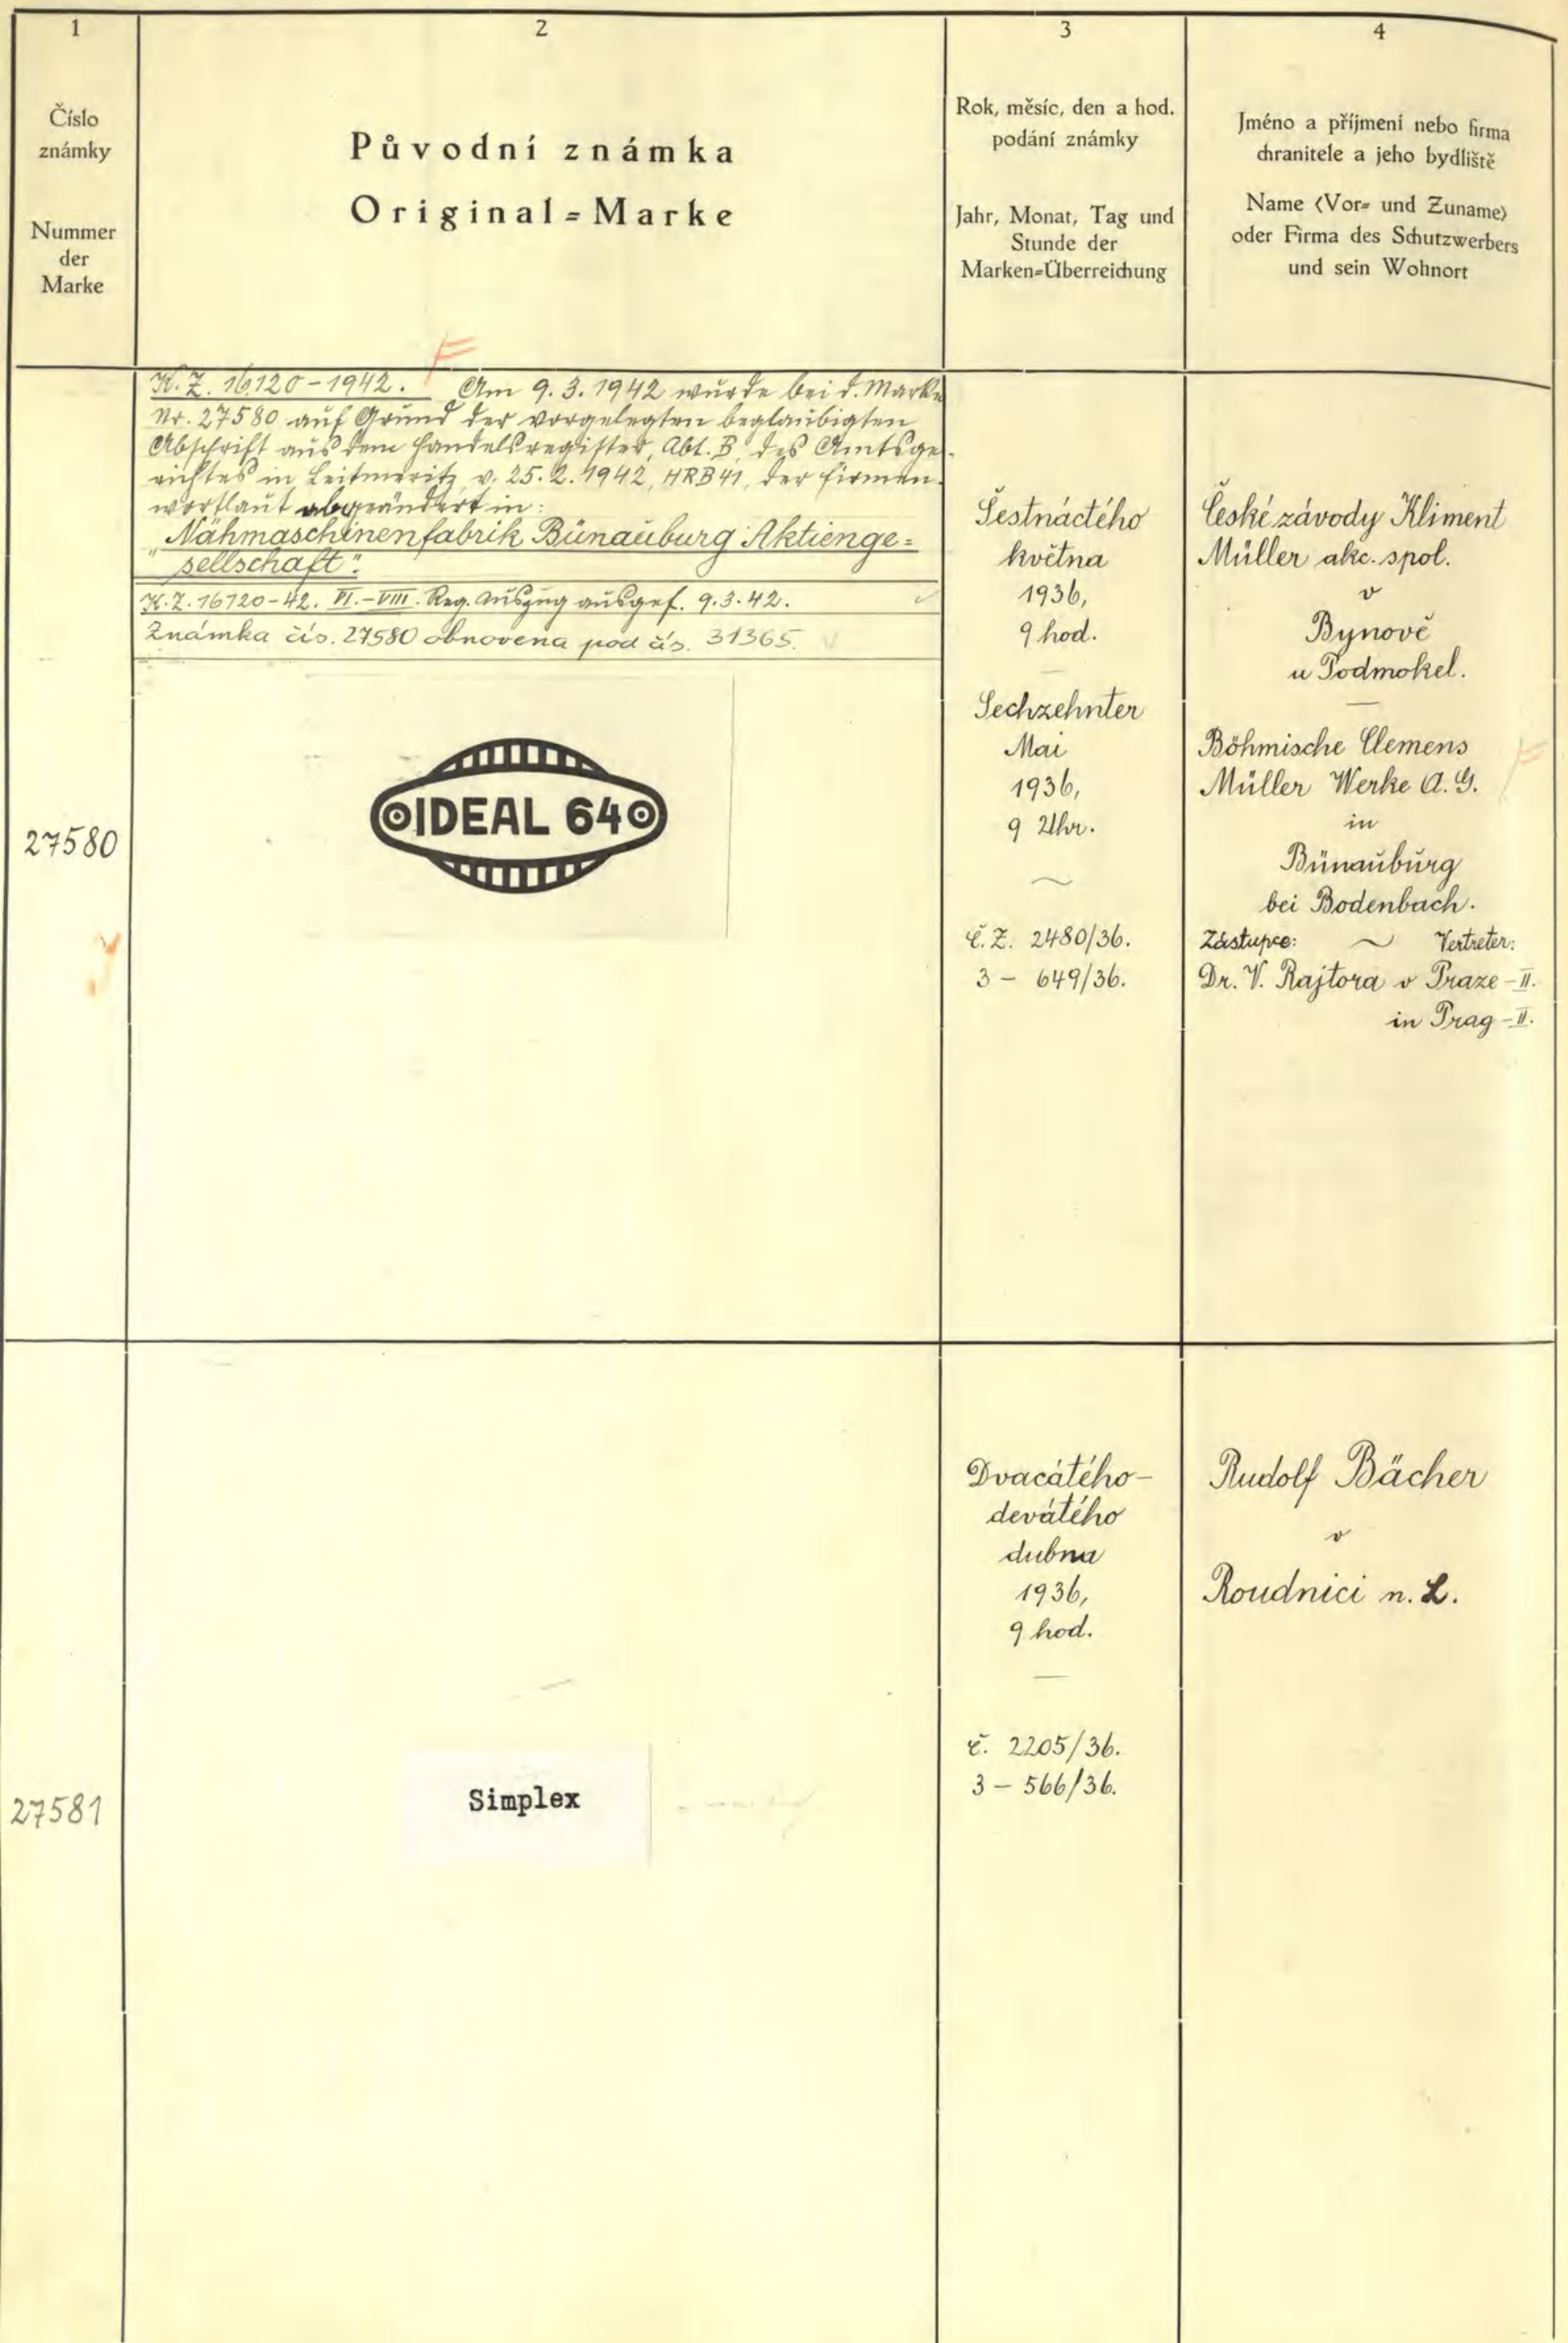 1
Číslo
známky
Nummer
der
Marke
2
Původní známka
Original=Marke
3
Rok, měsíc, den a hod.
podání známky
Jahr, Monat, Tag und
Stunde der
Marken=Überreichung
4
Jméno a příjmení nebo firma
chranitele a jeho bydliště
Name (Vor= und Zuname)
oder Firma des Schutzwerbers
und sein Wohnort
27580
K.Z. 16120-1942. Am 9.3.1942 wurde bei d. Marke
Nr. 27580 auf Grund der vorgelegten beglaubigten
Abschrift aus dem Handelsregister, Abt. B, des Amtsge-
richtes in Leitmeritz v. 25.2.1942, HRB 41, der Firmen-
wortlaut abgeändert in:
"Nähmaschinenfabrik Bünauburg Aktienge=
sellschaft".
K.Z. 16120-42. VI.-VIII. Reg. Auszug ausgef. 9.3.42.
Známka čís. 27580 obnovena pod čís. 31365.
IDEAL 64
Šestnáctého
května
1936,
9 hod.
Sechzehnter
Mai
1936,
9 Uhr.
Č.Z. 2480/36.
3 - 649/36.
České závody Kliment
Müller akc. spol.
v
Bynově
u Podmokel.
Böhmische Clemens
Müller Werke A.G.
in
Bünauburg
bei Bodenbach.
Zástupce: ~ Vertreter:
Dr. V. Rajtora v Praze-II.
in Prag-II.
27581
Simplex
Dvacátého-
devátého
dubna
1936,
9 hod.
č. 2205/36.
3 - 566/36.
Rudolf Bächer
v
Roudnici n. L.